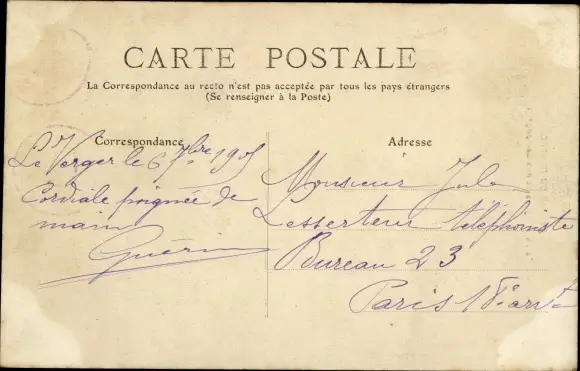 CARTE POSTALE
La Correspondance au recto n'est pas acceptée par tous les pays étrangers
(Se renseigner à la Poste)
Correspondance
Le Verger le 6 7bre 1905
Cordiale poignée de
main
Guérin
Adresse
Monsieur Jules
Lesserteur téléphoniste
Bureau 23
Paris 18e arrt